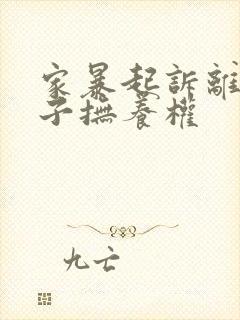 家暴起訴離
子撫養權
九亡